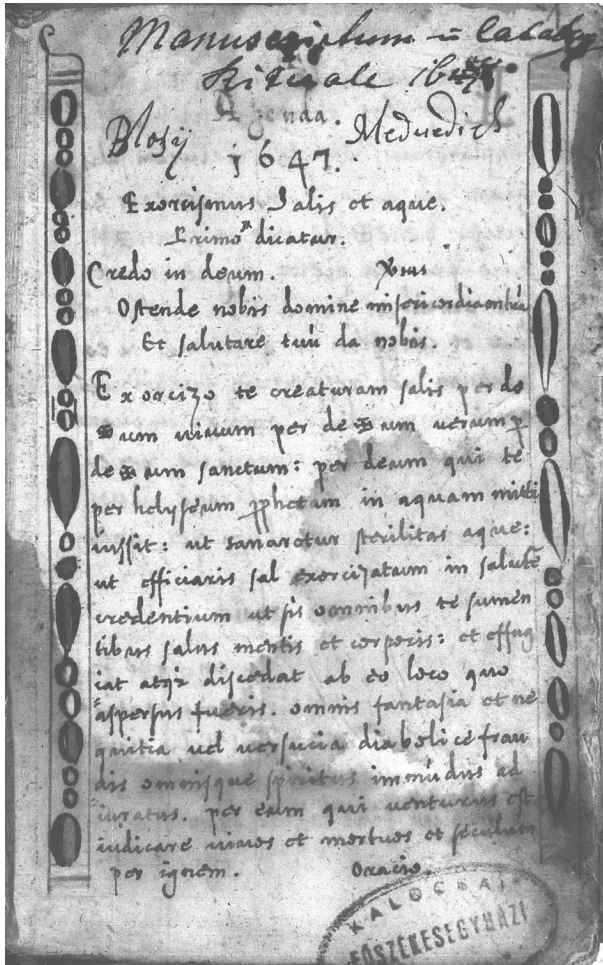 Manuscriptum
Rituale
Agenda.
Blosÿ Medvedich
1647.
Exorcismus Salis et aque.
Primo dicatur.
Credo in deum. Versus
Ostende nobis domine misericordiam tuã
Et salutare tuũ da nobis.
Exorcizo te creaturam salis per de
⳨um uiuum per de⳨um uerum p̱
de⳨um sanctum: per deum qui te
per helyseum ꝓphetam in aquam mitti
iussit: ut sanaretur sterilitas aque:
ut efficiaris sal exorcizatum in salutẽ
credentium ut sis omnibus te sumen
tibus salus mentis et corporis: et effug
iat atqꝫ discedat ab eo loco quo
aspersus fueris. omnis fantasia et ne
quitia uel uersucia diabolice frau
dis omnisque spiritus immũdus ad
iuratus. per eum qui uenturus est
iudicare uiuos et mortuos et seculum
per ignem. Oracio.
KALOCSAI
FŐSZÉKESEGYHÁZI